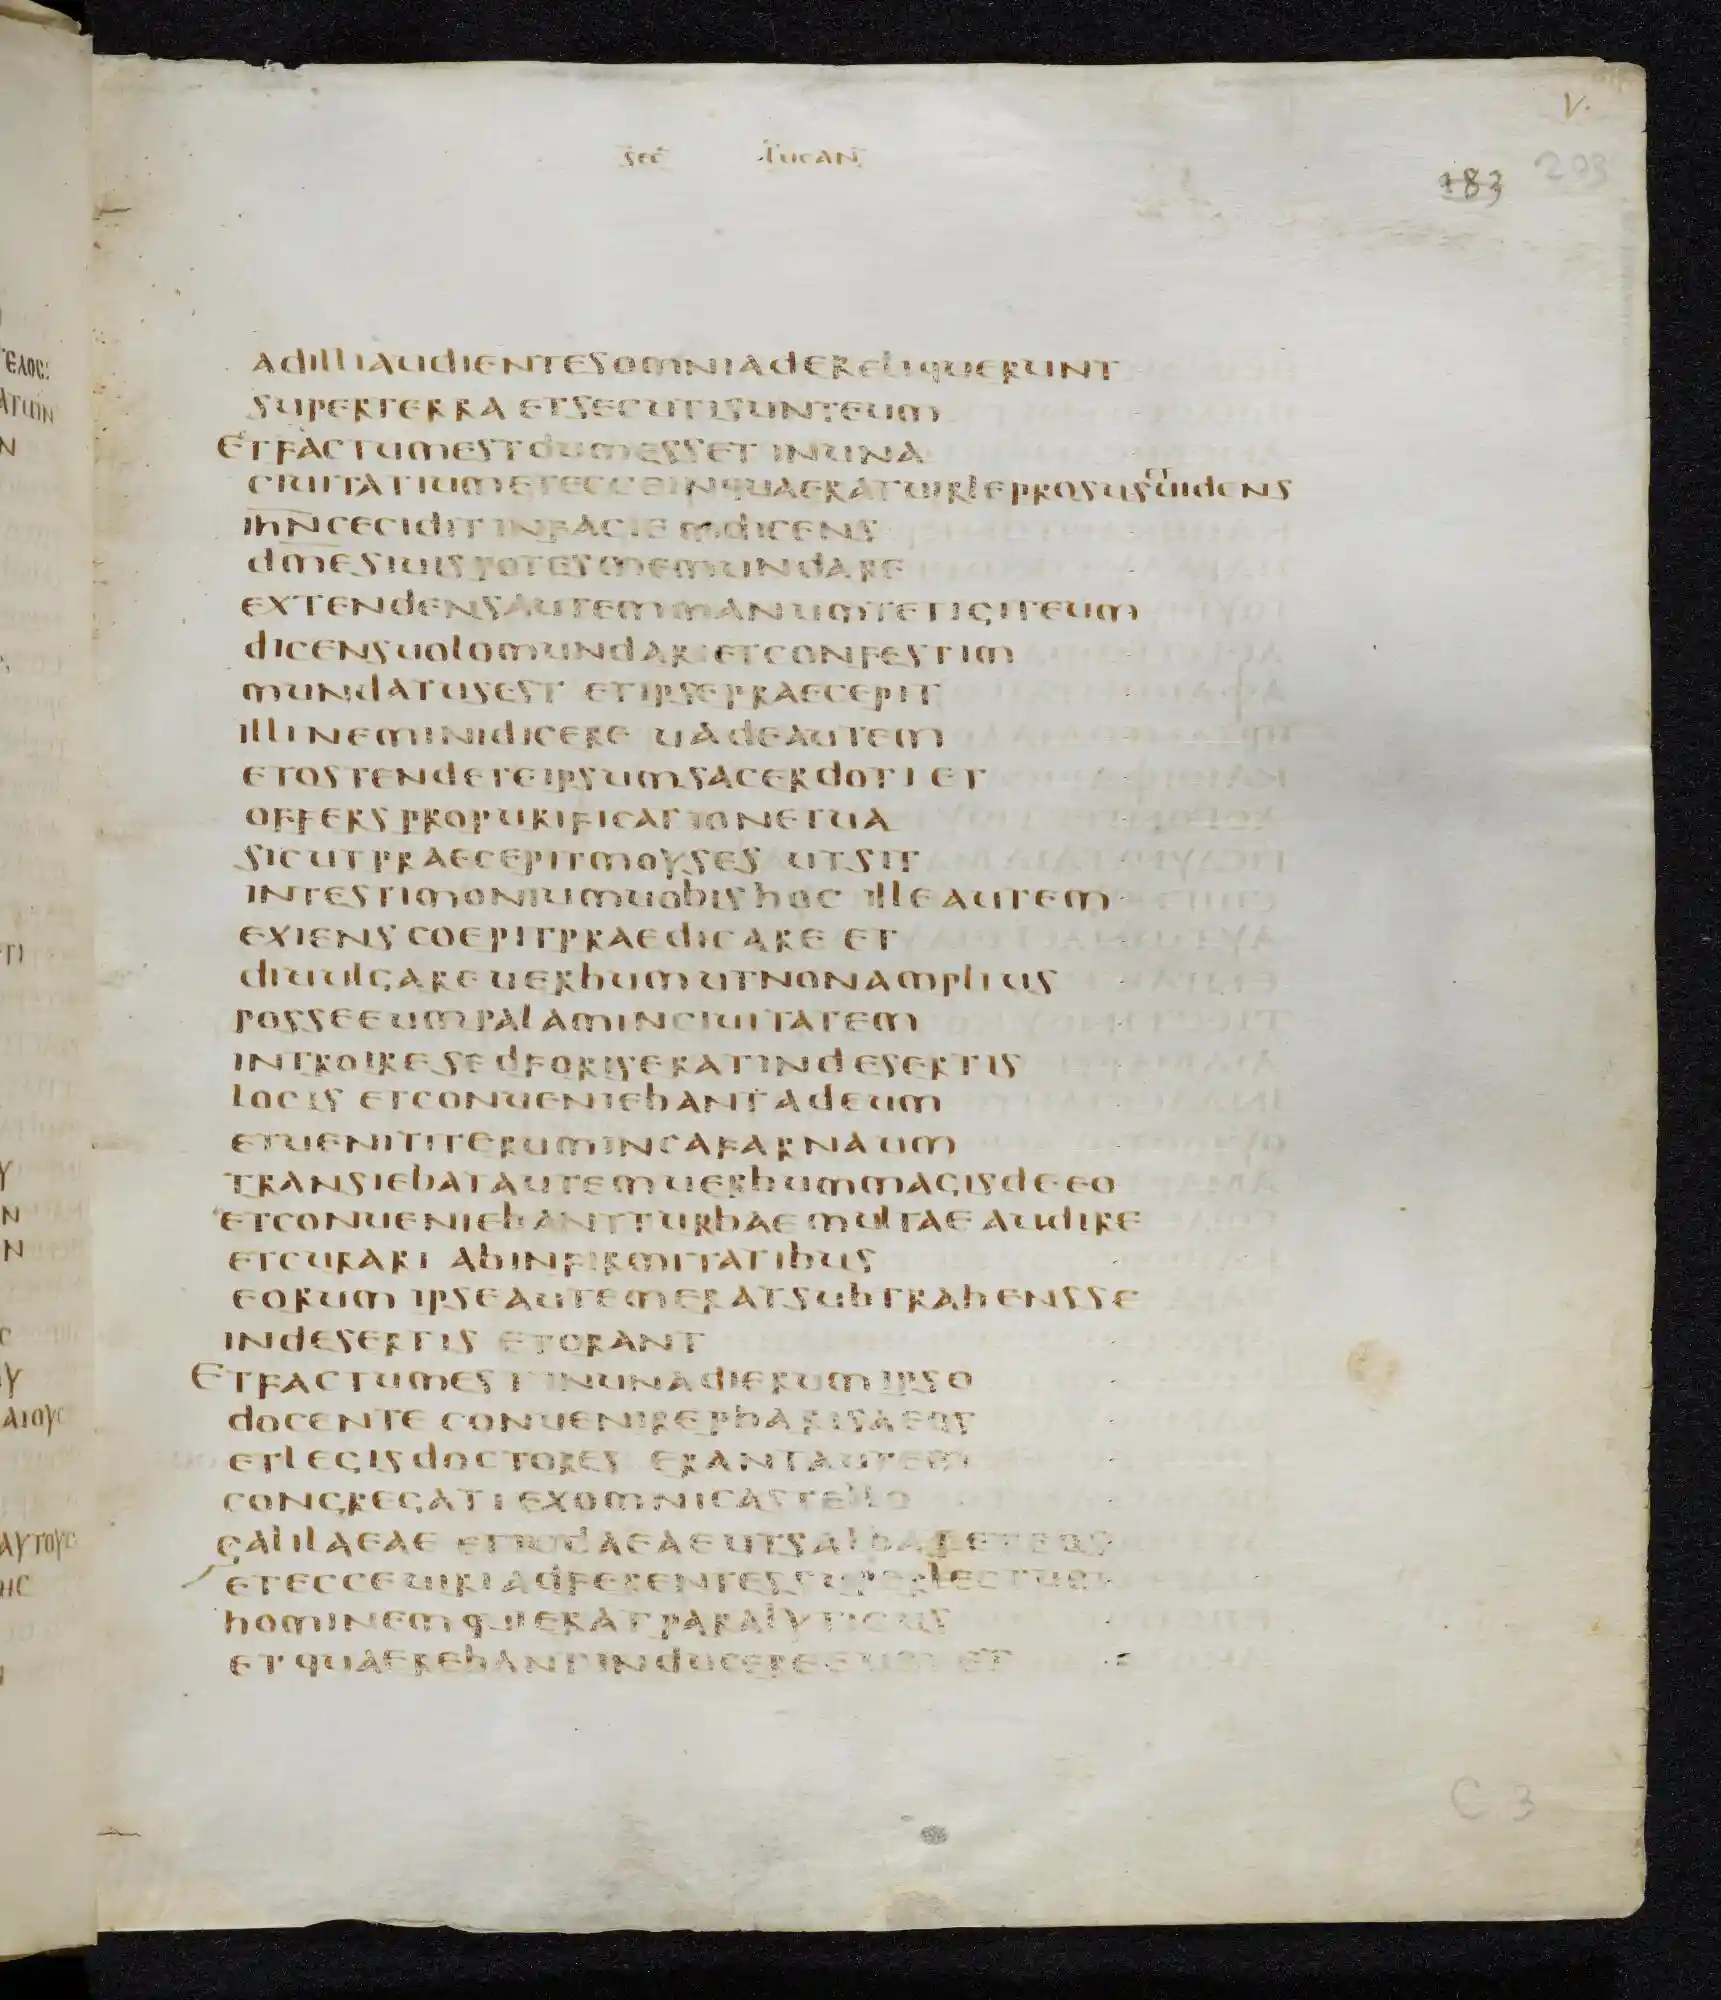 V.
sec lucan
183 203
adilliaudientesomniadereliquerunt
superterra etsecutisunteum
Etfactumestdumesset inuna
ciuitatiumetecceinquaeratuirleprosus et uidens
ihncecidit infaciem dicens
dmesiuispotesmemundare
extendensautemmanumtetigiteum
dicensuolomundari etconfestim
mundatusest etipsepraecepit
illineminidicere uadeautem
etostendeteipsumsacerdoti et
offerspropurificationetua
sicutpraecepitmoyses utsit
intestimoniumuobishoc illeautem
exienscoepitpraedicare et
diuulgareuerbumutnonamplius
posseeumpalaminciuitatem
introiresedforiseratindesertis
locis etconueniebantadeum
etuenititerumincafarnaum
transiebatautemuerbummagisdeeo
etconueniebantturbaemultaeaudire
etcurari abinfirmitatibus
eorum ipseautemeratsubtrahensse
indesertis etorant
Etfactumestinunadierumipso
docente conuenirepharisaeos
etlegisdoctores erantautem
congregatiexomnicastello
galilaeae etiudaeaeutsalbareteos
etecceuiriadferentessuperlectum
hominemquieratparalyticus
etquaerebantinducereeum et
C 3